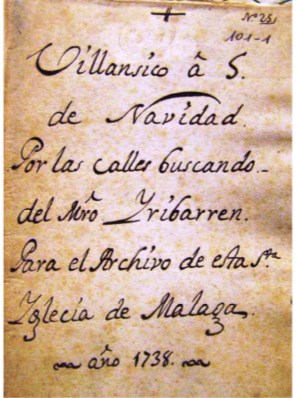 Nº 28
101-1
Villansico â 5.
de Navidad.
Por las calles buscando.
del Mrô Yribarren.
Para el Archivo de esta Sta
Yglecia de Malaga.
año 1738.